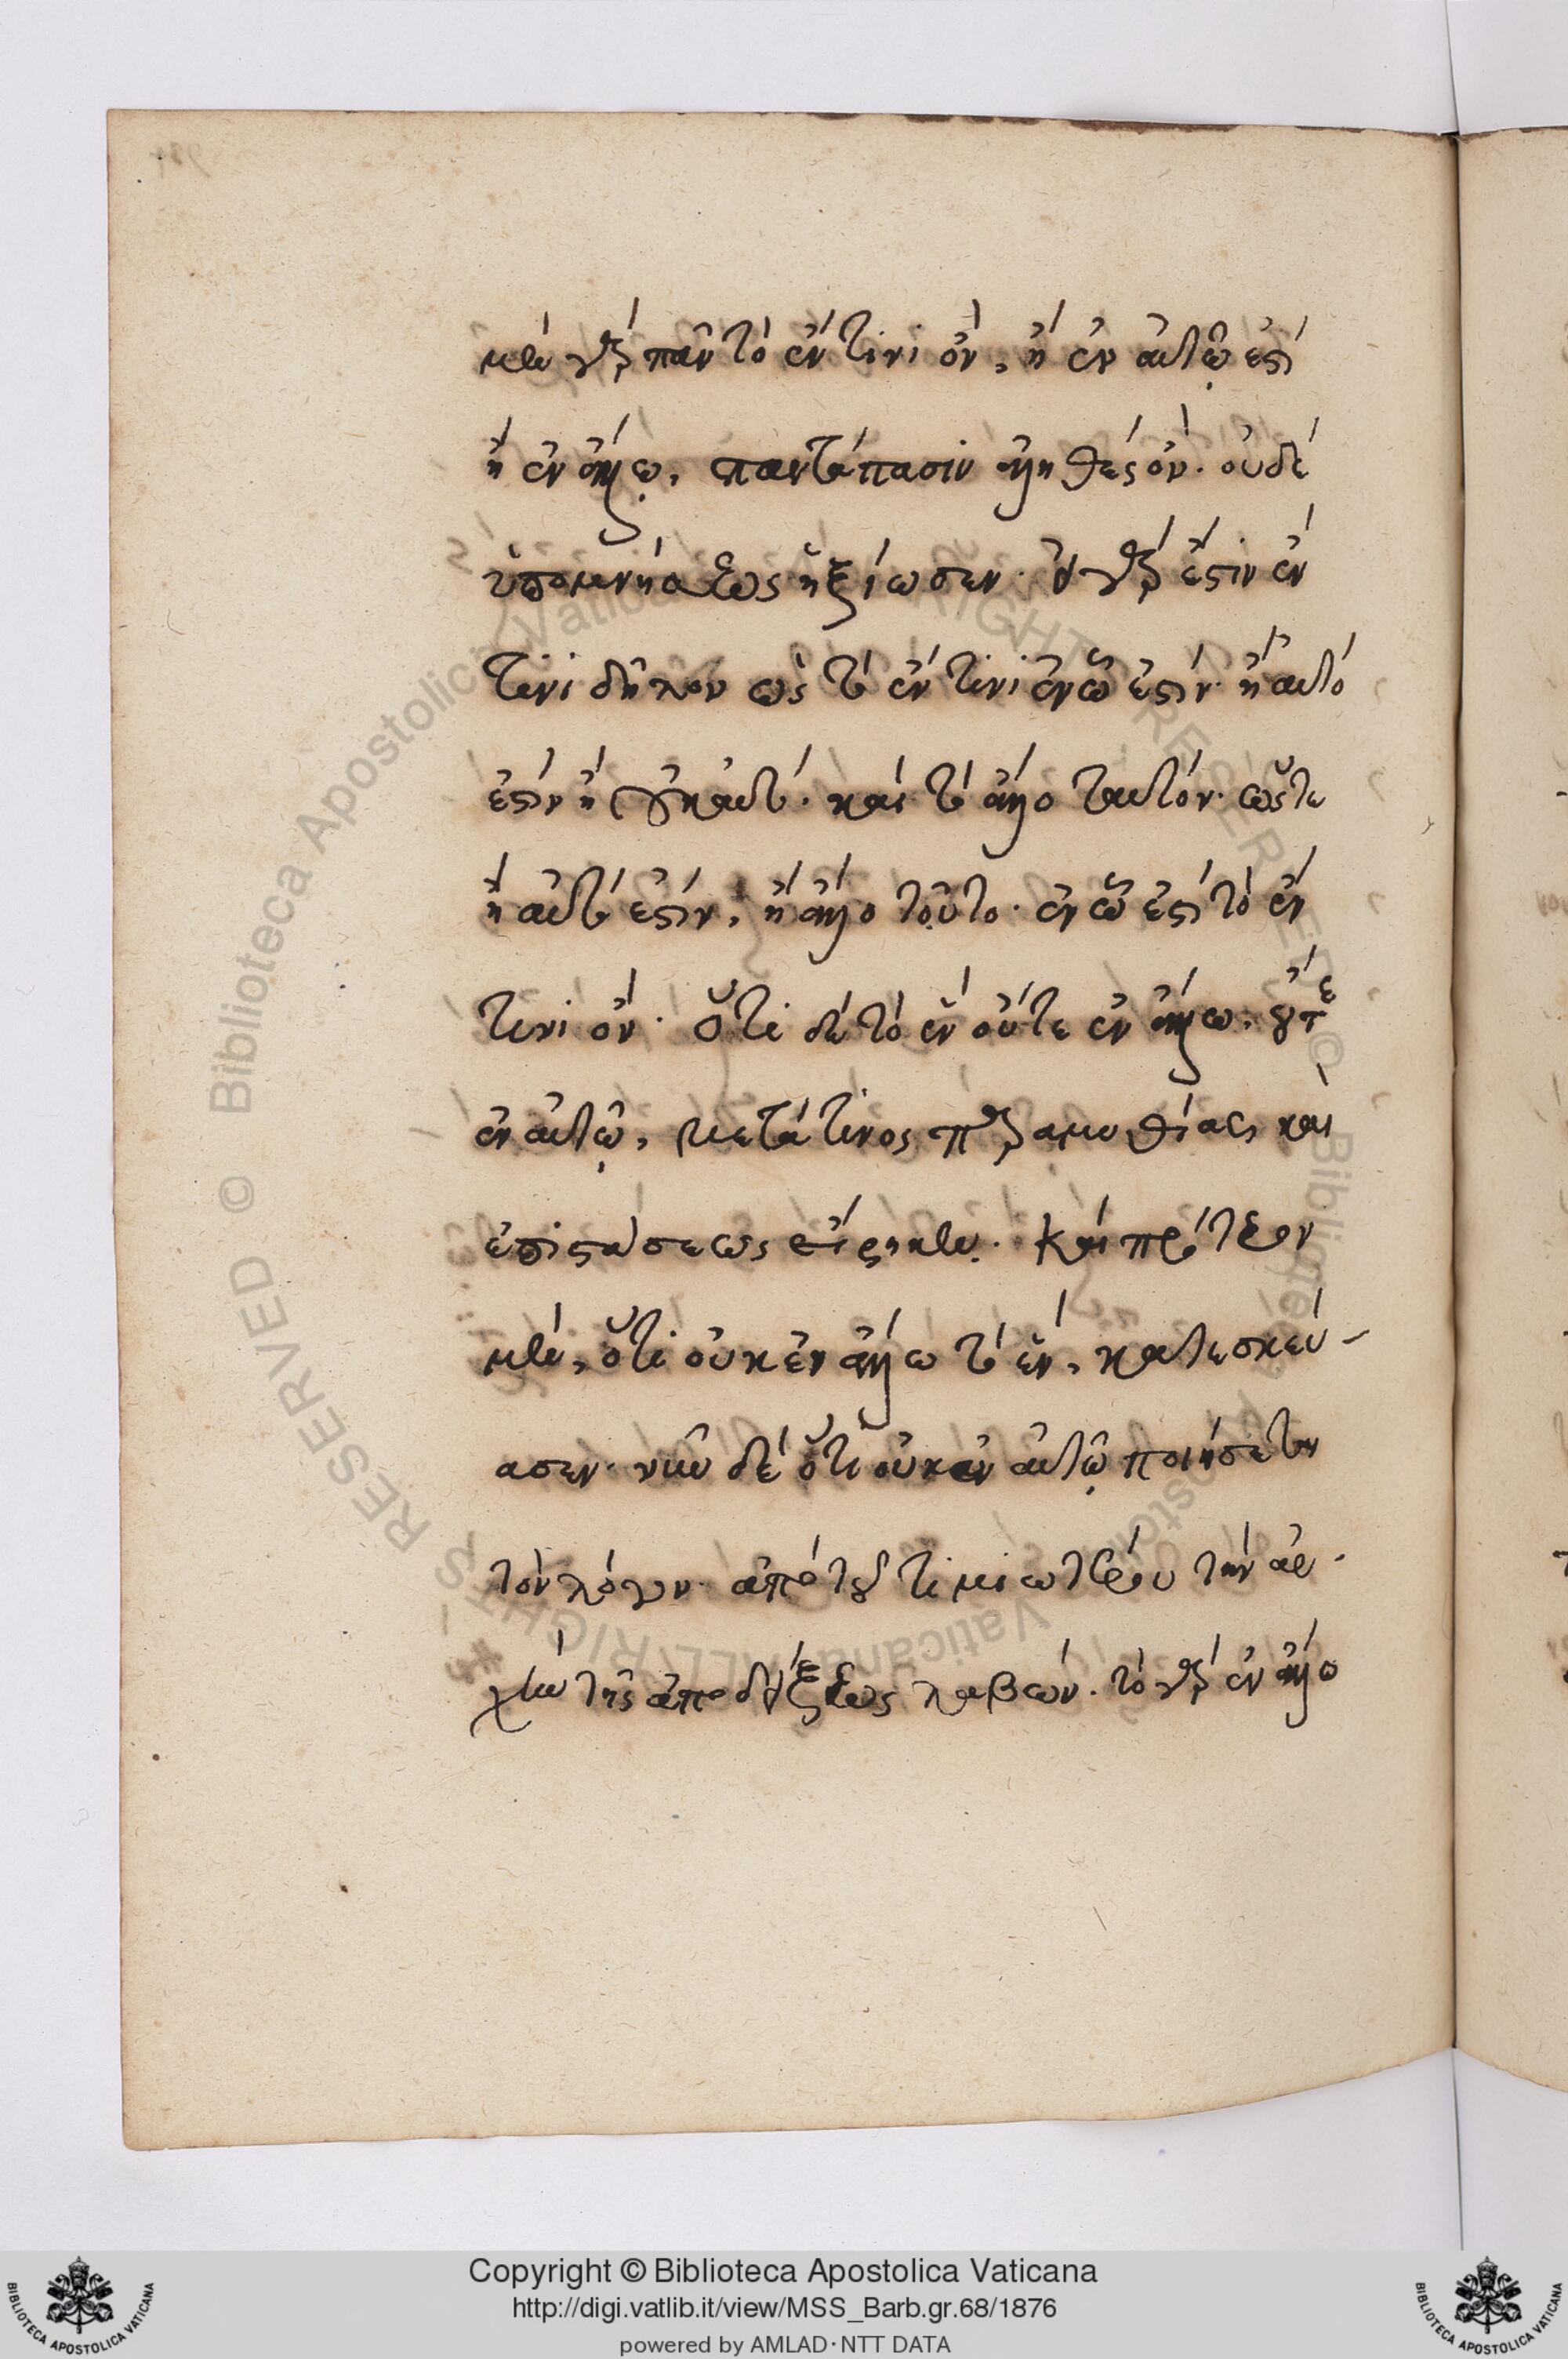 μὲν γὰρ πᾶν τὸ ἔν τινι ὄν, ἢ ἐν αὑτῷ ἐστὶ
ἢ ἐν ἄλλῳ, παντάπασιν ἀληθὲς ὄν. οὐδὲ
ὑπομνήσεως ἠξίωσεν. εἰ γάρ ἐστιν ἔν
τινι δῆλον ὡς τὸ ἔν τινι ἐν ᾧ ἐστιν. ἢ αὐτό
ἐστιν ἢ οὐκ αὐτό. καὶ τὸ ἄλλο ταυτόν. ὥστε
ἢ αὐτό ἐστιν, ἢ ἄλλο τοῦτο. ἐν ᾧ ἐστὶ τὸ ἔν
τινι ὄν. ὅτι δὲ τὸ ἓν οὔτε ἐν ἄλλω, οὔτε
ἐν αὑτῷ, μετά τινος παραμυθίας καὶ
ἐπιστάσεως εἴρηκεν. Καὶ πρότερον
μὲν, ὅτι οὐκ ἐν ἄλλω τὸ ἕν, κατεσκεύ-
ασεν. νῦν δὲ ὅτι οὐκ ἐν αὑτῷ ποιήσεται
τὸν λόγον. ἀπὸ τοῦ τιμιωτέρου τὴν ἀρ-
χὴν τῆς ἀποδείξεως λαβών. τὸ γὰρ ἐν ἄλλο
Copyright © Biblioteca Apostolica Vaticana
http://digi.vatlib.it/view/MSS_Barb.gr.68/1876
powered by AMLAD·NTT DATA
BIBLIOTECA APOSTOLICA VATICANA
BIBLIOTECA APOSTOLICA VATICANA